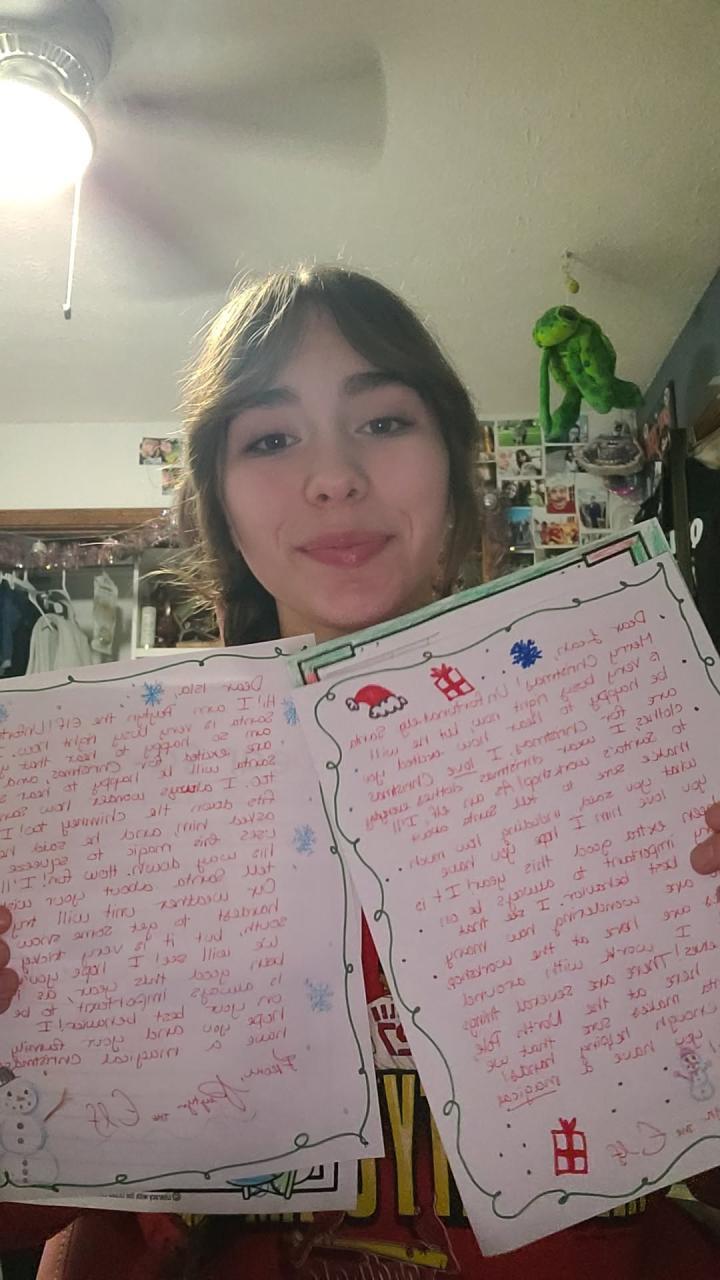 Dear Isla,
Hi! I am Payton the Elf! Unfort
Santa is very busy right now. I
am so happy to hear that y
are excited for Christmas, and
Santa will be happy to hear s
too. I always wonder how San
fits down the chimney too! I
asked him, and he said he
uses his magic to squeeze
his way down. How fun! I'll
tell Santa about your wis
for weather. will try
hardest to get some snow
south, but it is very tricky
We will see! I hope you
been good this year, as i
is always important to be
on your best behavior! I
hope you and your family
have a magical Christmas
From,
the Elf
Dear Leah,
Merry Christmas! Unfortunately Santa
is very busy right now, but he will
be happy to hear how excited you
are for Christmas. I love Christmas
clothes! I wear christmas clothes everyday
to Santa's workshop! As an elf, I'll
make sure to tell Santa about
what you said including how much
you love him! I hope you have
been extra good this year! It is
important to always be on
best behavior. I see that
are wondering how many
are here at the workshop
I work with; around
There are several things
here at the North Pole
ta makes sure that we
enough helping hands!
you have a
magical
the Elf